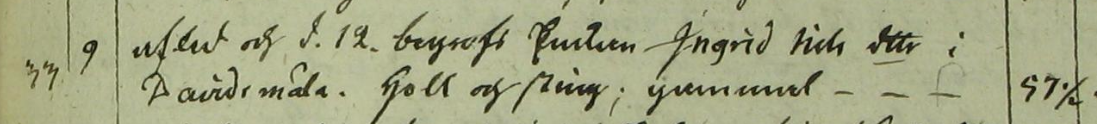 9 afled och d. 12. begrofs Enckan Ingrid Nils dttr i
33 Davidsmåla. Håll och styng; gammal - - - 57 1/2.